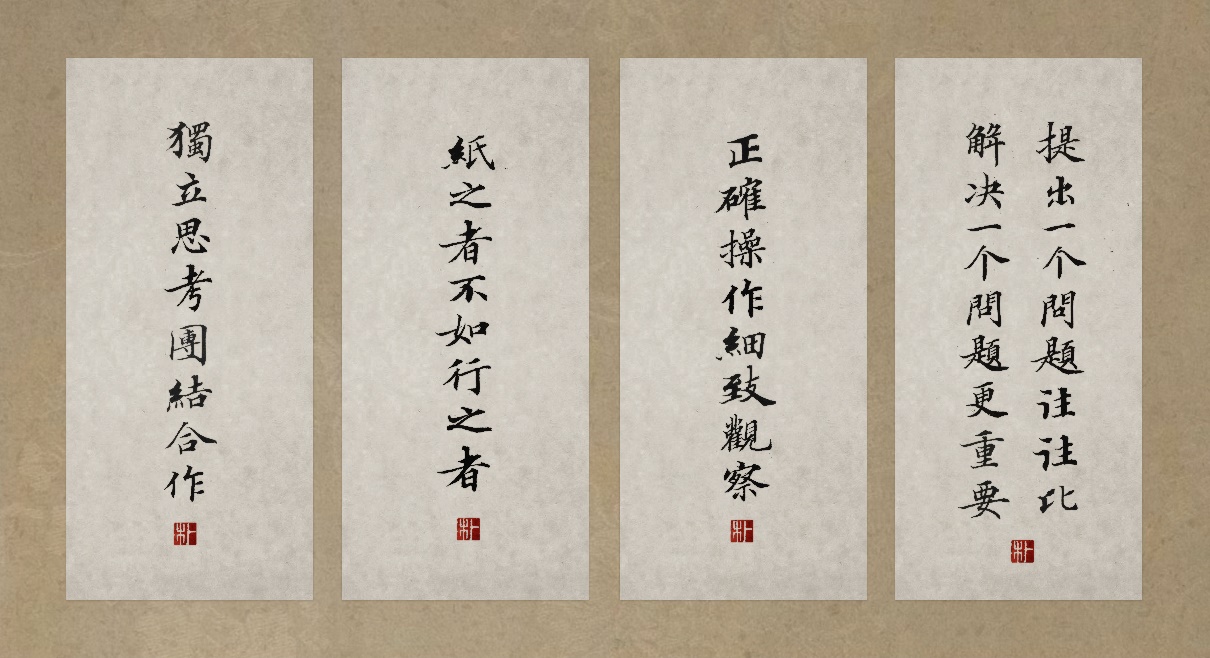 提出一个問題往往比
解决一个問題更重要
朴
正確操作細致觀察
朴
紙之者不如行之者
朴
獨立思考團結合作
朴